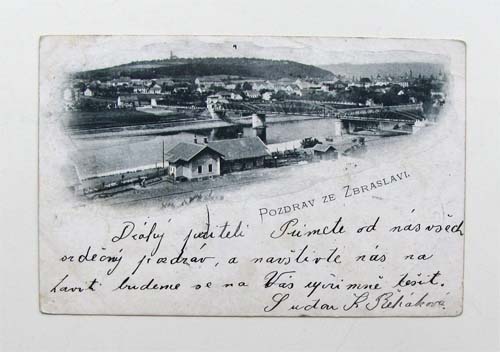 Pozdrav ze Zbraslavi.
Drahý příteli Přímete od nás všech
srdečný pozdráv, a navštivte nás na
budeme se na Vás upřímně těšit.
S K. Řeháková